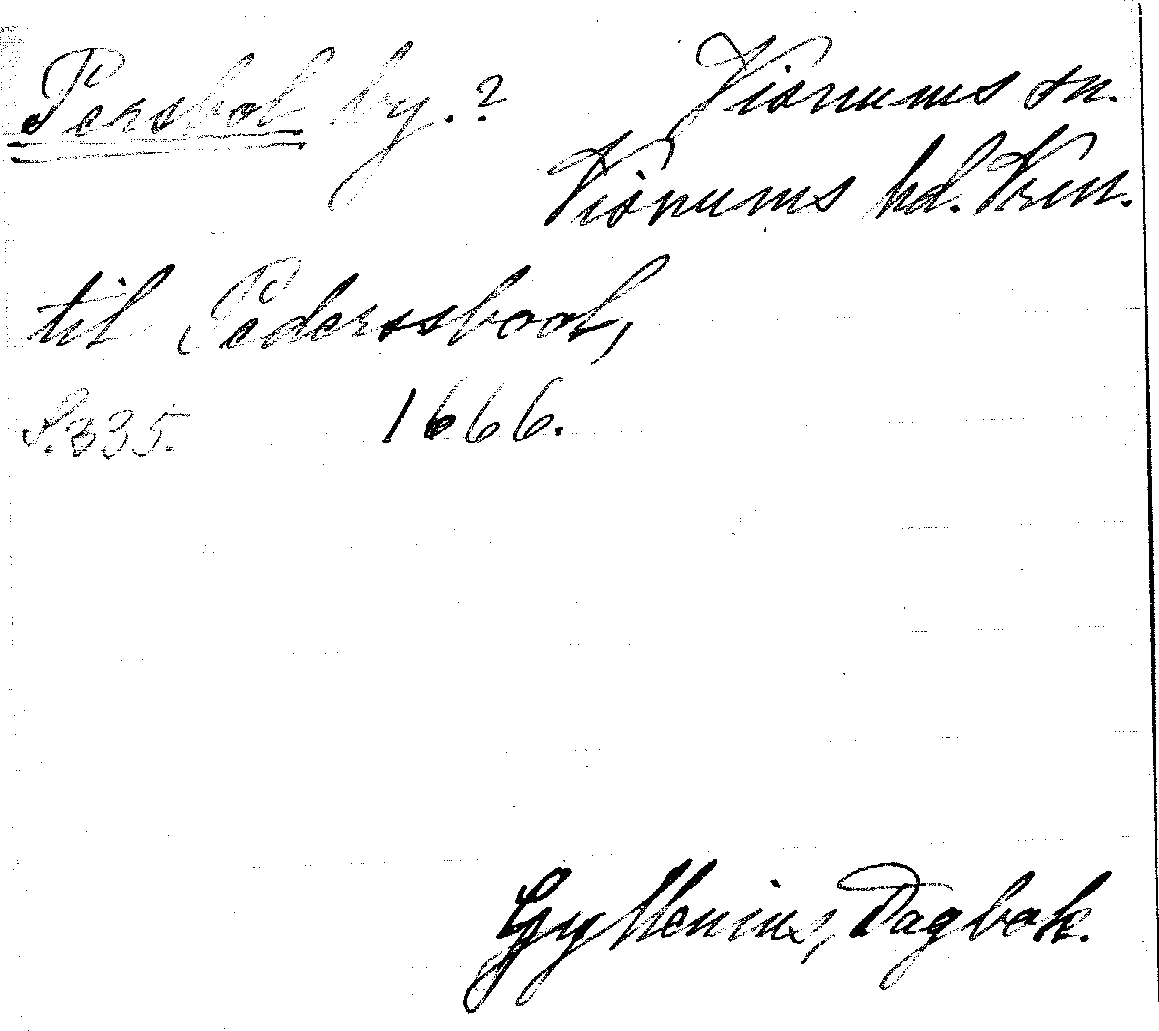 Persbol by.? Visnums sn.
Visnums hd. Vrm.
til Pederssbool,
S. 335. 1666.
Gyllenius, Dagbok.